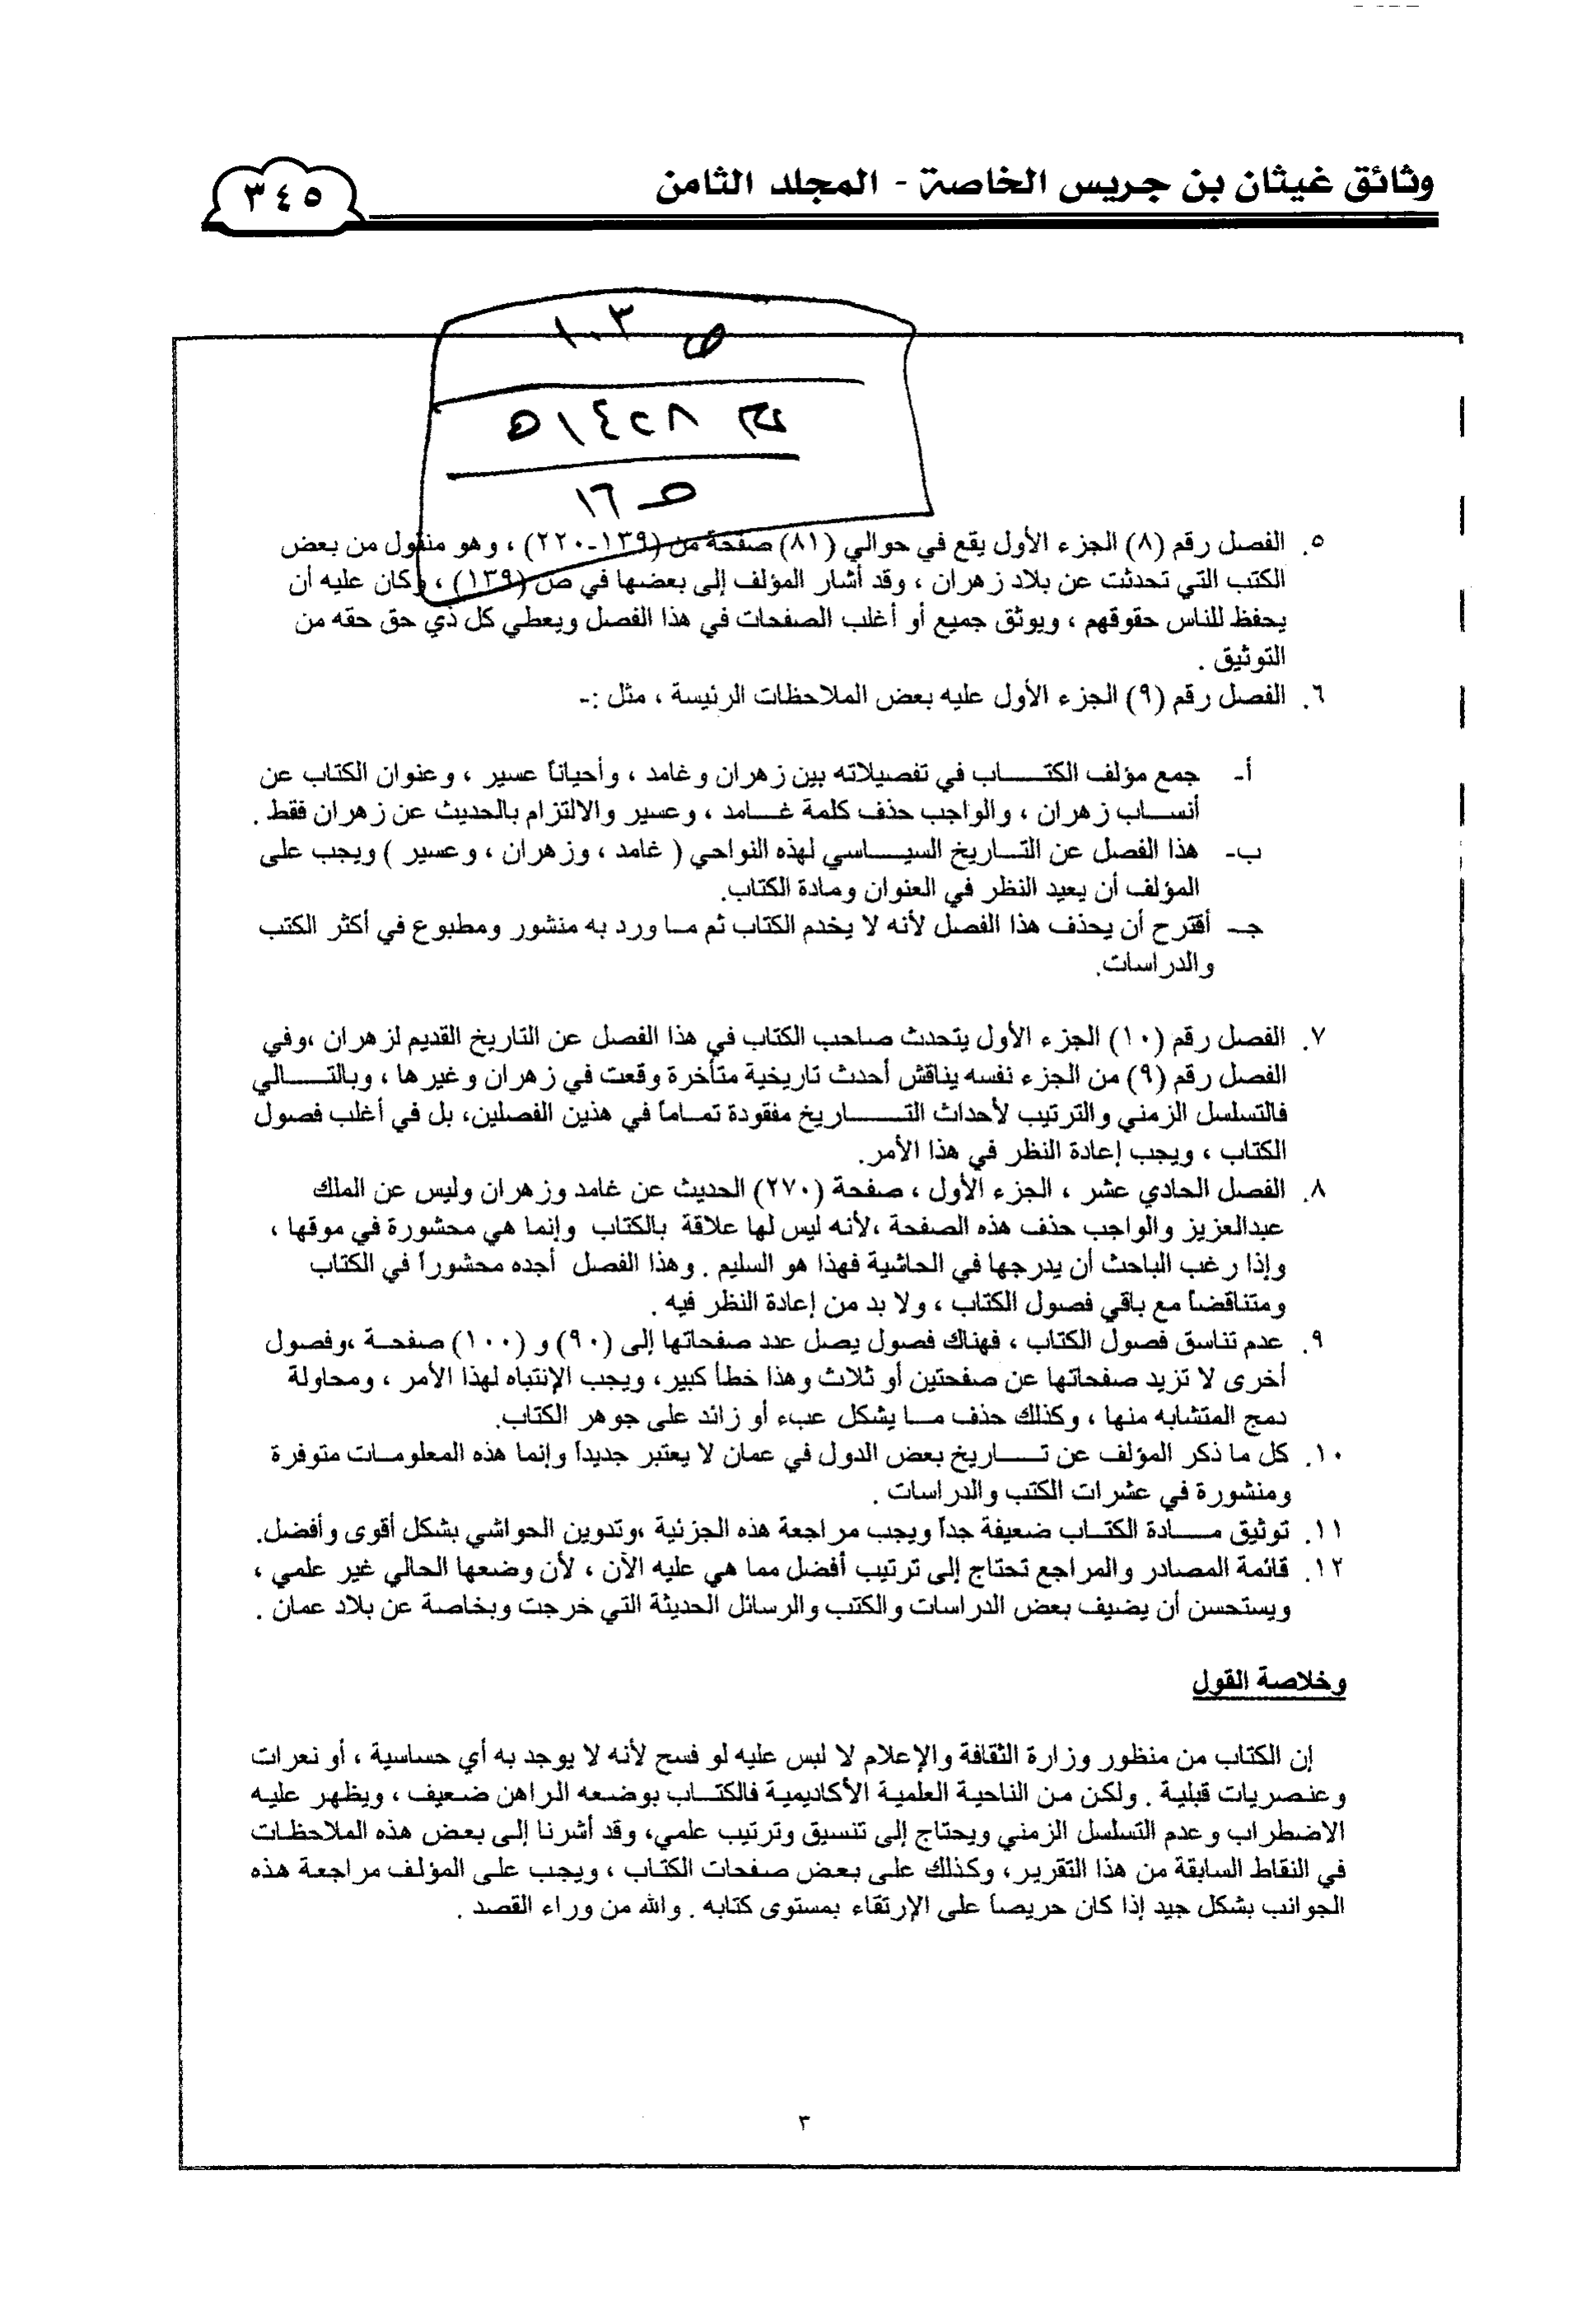 وثائق غيثان بن جريس الخاصة - المجلد الثامن
٣٤٥
ص ١٠٣
١٤٢٨هـ
ص ١٦
٥. الفصل رقم (٨) الجزء الأول يقع في حوالي (٨١) صفحة من (١٣٩-٢٢٠) ، وهو منقول من بعض
الكتب التي تحدثت عن بلاد زهران ، وقد أشار المؤلف إلى بعضها في ص (١٣٩) ، وكان عليه أن
يحفظ للناس حقوقهم ، ويوثق جميع أو أغلب الصفحات في هذا الفصل ويعطي كل ذي حق حقه من
التوثيق .
٦. الفصل رقم (٩) الجزء الأول عليه بعض الملاحظات الرئيسة ، مثل :-
أ- جمع مؤلف الكتاب في تفصيلاته بين زهران وغامد ، وأحياناً عسير ، وعنوان الكتاب عن
أنساب زهران ، والواجب حذف كلمة غامد ، وعسير والالتزام بالحديث عن زهران فقط .
ب- هذا الفصل عن التاريخ السياسي لهذه النواحي ( غامد ، وزهران ، وعسير ) ويجب على
المؤلف أن يعيد النظر في العنوان ومادة الكتاب.
جـ- أقترح أن يحذف هذا الفصل لأنه لا يخدم الكتاب ثم ما ورد به منشور ومطبوع في أكثر الكتب
والدراسات.
٧. الفصل رقم (١٠) الجزء الأول يتحدث صاحب الكتاب في هذا الفصل عن التاريخ القديم لزهران ،وفي
الفصل رقم (٩) من الجزء نفسه يناقش أحدث تاريخية متأخرة وقعت في زهران وغيرها ، وبالتالي
فالتسلسل الزمني والترتيب لأحداث التاريخ مفقودة تماماً في هذين الفصلين، بل في أغلب فصول
الكتاب ، ويجب إعادة النظر في هذا الأمر.
٨. الفصل الحادي عشر ، الجزء الأول ، صفحة (٢٧٠) الحديث عن غامد وزهران وليس عن الملك
عبدالعزيز والواجب حذف هذه الصفحة ،لأنه ليس لها علاقة بالكتاب وإنما هي محشورة في موقها ،
وإذا رغب الباحث أن يدرجها في الحاشية فهذا هو السليم . وهذا الفصل أجده محشوراً في الكتاب
ومتناقضاً مع باقي فصول الكتاب ، ولا بد من إعادة النظر فيه .
٩. عدم تناسق فصول الكتاب ، فهناك فصول يصل عدد صفحاتها إلى (٩٠) و (١٠٠) صفحة ،وفصول
أخرى لا تزيد صفحاتها عن صفحتين أو ثلاث وهذا خطأ كبير، ويجب الإنتباه لهذا الأمر ، ومحاولة
دمج المتشابه منها ، وكذلك حذف ما يشكل عبء أو زائد على جوهر الكتاب.
١٠. كل ما ذكر المؤلف عن تاريخ بعض الدول في عمان لا يعتبر جديداً وإنما هذه المعلومات متوفرة
ومنشورة في عشرات الكتب والدراسات .
١١. توثيق مادة الكتاب ضعيفة جداً ويجب مراجعة هذه الجزئية ،وتدوين الحواشي بشكل أقوى وأفضل.
١٢. قائمة المصادر والمراجع تحتاج إلى ترتيب أفضل مما هي عليه الآن ، لأن وضعها الحالي غير علمي ،
ويستحسن أن يضيف بعض الدراسات والكتب والرسائل الحديثة التي خرجت وبخاصة عن بلاد عمان .
وخلاصة القول
إن الكتاب من منظور وزارة الثقافة والإعلام لا لبس عليه لو فسح لأنه لا يوجد به أي حساسية ، أو نعرات
وعنصريات قبلية . ولكن من الناحية العلمية الأكاديمية فالكتاب بوضعه الراهن ضعيف ، ويظهر عليه
الاضطراب وعدم التسلسل الزمني ويحتاج إلى تنسيق وترتيب علمي، وقد أشرنا إلى بعض هذه الملاحظات
في النقاط السابقة من هذا التقرير، وكذلك على بعض صفحات الكتاب ، ويجب على المؤلف مراجعة هذه
الجوانب بشكل جيد إذا كان حريصاً على الإرتقاء بمستوى كتابه . والله من وراء القصد .
٣